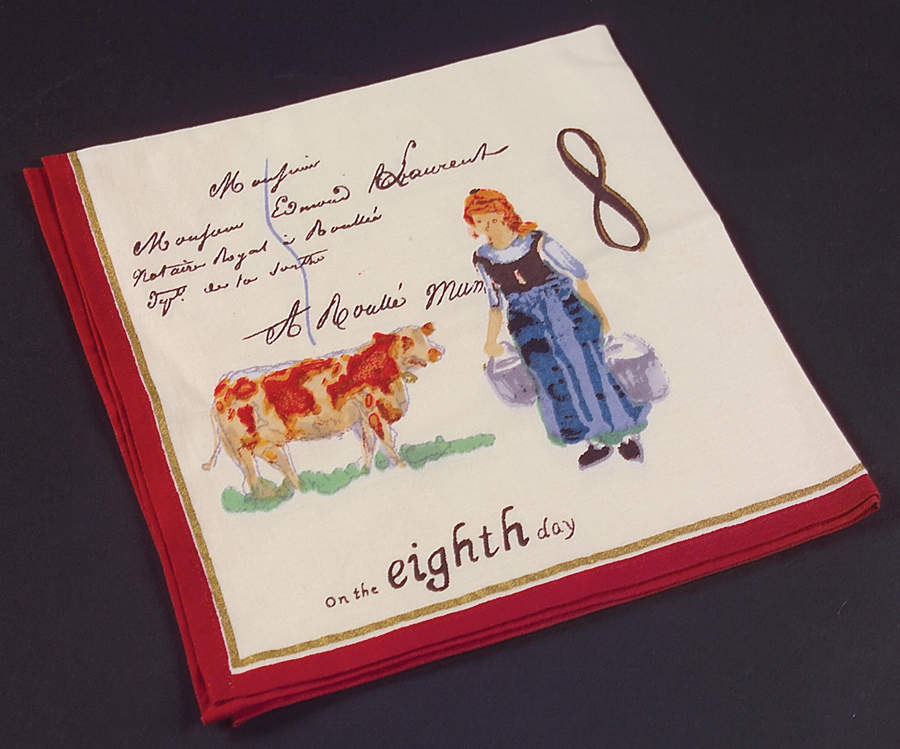 Monsieur
Monsieur Edmond Laurent
Notaire Royal à Roullié
de la
A Roullié
8
on the eighth day